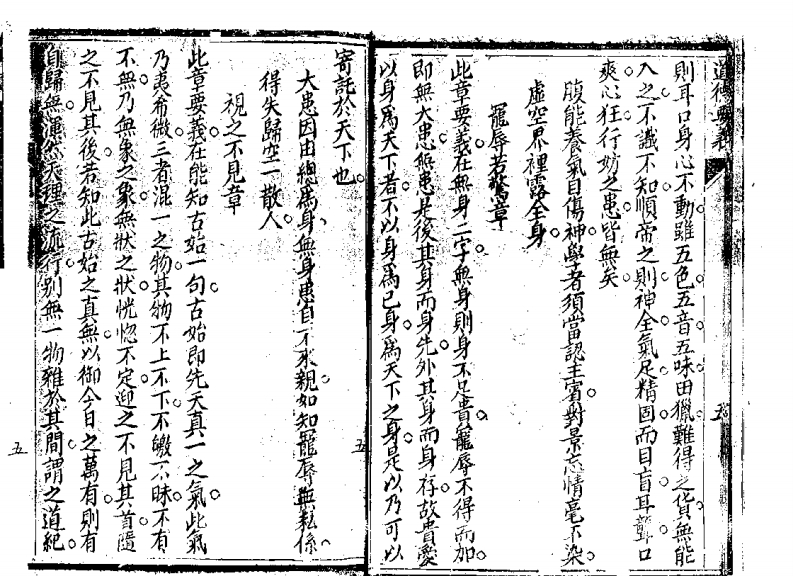 道德要義
五
則耳口身心不動雖五色五音五味田獵難得之貨無能
入之不識不知順帝之則神全氣足精固而目盲耳聾口
爽心狂行妨之患皆無矣
腹能養氣目傷神學者須當認主賓對景忘情毫不染
虛空界裡露全身
寵辱若驚章
此章要義在無身二字無身則身不足貴寵辱不得而加
即無大患無患是後其身而身先外其身而身存故貴愛
以身為天下者不以身為己身為天下之身是以乃可以
寄託於天下也
大患因由總為身無身患自不來親如知寵辱無耘係
得失歸空一散人
視之不見章
此章要義在能知古始一句古始即先天真一之氣此氣
乃夷希微三者混一之物其物不上不下不皦不昧不有
不無乃無象之象無狀之狀恍惚不定迎之不見其首隨
之不見其後若知此古始之真無以御今日之萬有則有
自歸無渾然天理之流行別無一物雜於其間謂之道紀
五
五